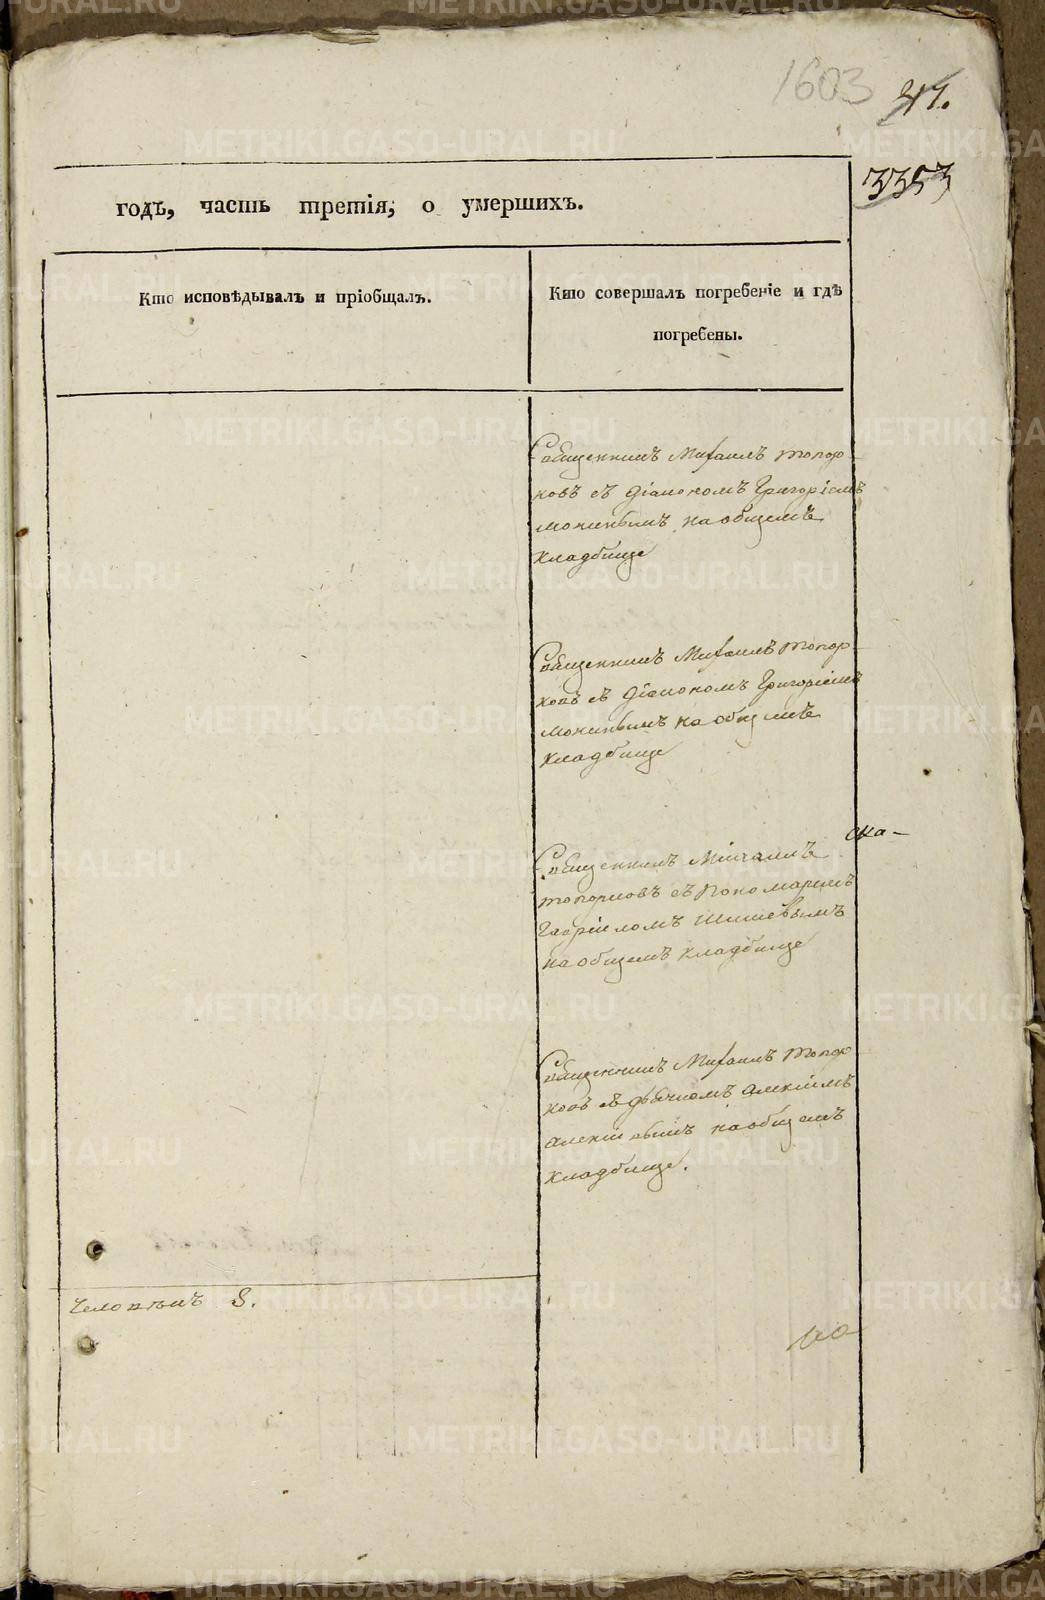 1603
3353
годъ, часть третія, о умершихъ.
Кто исповѣдывалъ и пріобщалъ.
Кто совершалъ погребеніе и гдѣ
погребены.
Священникъ Михаилъ Топор
ковъ съ Діакономъ Григоріемъ
на общемъ
кладбище
Священникъ Михаилъ Топор
ковъ съ Діакономъ Григоріемъ
на общемъ
кладбище
Священникъ Михаилъ
Топорковъ съ Пономаремъ
Гавріиломъ
на общемъ кладбище
Священникъ Михаилъ Топор
ковъ съ дьячкомъ Алексіемъ
на общемъ
кладбище.
Человѣкъ 8.
METRIKI.GASO-URAL.RU